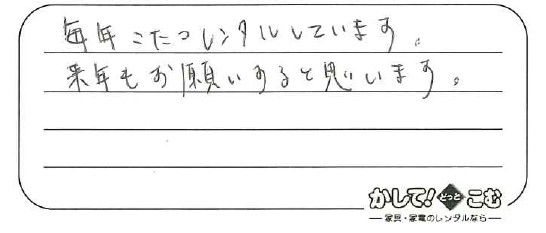 毎年こたつレンタルしています。
来年もお願いすると思います。
かして!どっとこむ
家具・家電のレンタルなら